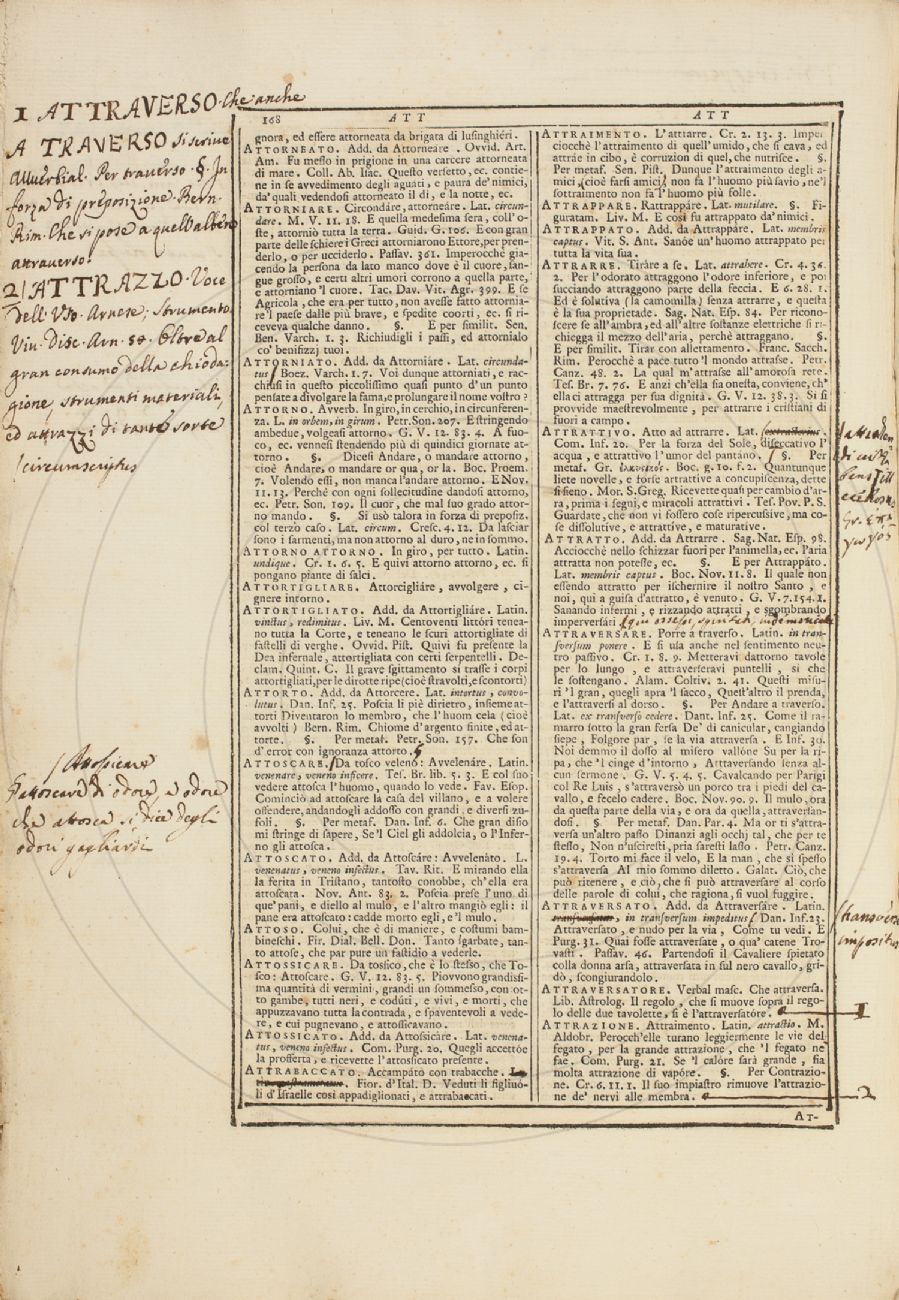 1 ATTRAVERSO. Che anche
A TRAVERSO si scrive
Avverbial. Per traverso. §. In
forza di preposizione. Bern.
Rim. Che si pose a quell'albero
attraverso.
2/ ATTRAZZO. Voce
dell'Uso. Arnese, strumento.
Viv. Disc. Arn. 50. Oltre al
gran consumo della chioda-
gione, strumenti materiali,
ed attrazzi di tante sorte
/circumscriptus
/Attossicare
§ attoscare di odore, e odore
che attosca, si dice degli
odori gagliardi
168 ATT
gnora, ed essere attorneata da brigata di lusinghiéri.
ATTORNEATO. Add. da Attorneáre. Ovvid. Art.
Am. Fu messo in prigione in una carcere attorneata
di mare. Coll. Ab. Isac. Questo versetto, ec. contie-
ne in se avvedimento degli aguati, e paura de' nimici,
da' quali vedendosi attorneato il dì, e la notte, ec.
ATTORNIARE. Circondáre, attorneáre. Lat. circun-
dare. M. V. 11. 18. E quella medesima sera, coll'o-
ste, attorniò tutta la terra. Guid. G. 106. E con gran
parte delle schiere i Greci attorniarono Ettore, per pren-
derlo, o per ucciderlo. Passav. 361. Imperocchè gia-
cendo la persona da lato manco dove è il cuore, san-
gue grosso, e certi altri umori corrono a quella parte,
e attorniano 'l cuore. Tac. Dav. Vit. Agr. 399. E se
Agricola, che era per tutto, non avesse fatto attornia-
re 'l paese dalle più brave, e spedite coorti, ec. si ri-
ceveva qualche danno. §. E per similit. Sen.
Ben. Varch. 1. 3. Richiudigli i passi, ed attornialo
co' benifizzj tuoi.
ATTORNIATO. Add. da Attorniáre. Lat. circunda-
tus/ Boez. Varch. 1. 7. Voi dunque attorniati, e rac-
chiusi in questo piccolissimo quasi punto d'un punto
pensate a divolgare la fama, e prolungare il nome vostro?
ATTORNO. Avverb. In giro, in cerchio, in circunferen-
za. L. in orbem, in girum. Petr. Son. 207. E stringendo
ambedue, volgeasi attorno. G. V. 12. 83. 4. A suo-
co, ec. vennesi stendendo più di quindici giornate at-
torno. §. Dicesi Andare, o mandare attorno,
cioè Andare, o mandare or qua, or la. Boc. Proem.
7. Volendo essi, non manca l'andare attorno. E Nov.
11. 13. Perchè con ogni sollecitudine dandosi attorno,
ec. Petr. Son. 109. Il cuor, che mal suo grado attor-
no mando. §. Si usò talora in forza di preposiz.
col terzo caso. Lat. circum. Cresc. 4. 12. Da lasciar
sono i sarmenti, ma non attorno al duro, ne in sommo.
ATTORNO ATTORNO. In giro, per tutto. Latin.
undique. Cr. 1. 6. 5. E quivi attorno attorno, ec. si
pongano piante di salci.
ATTORTIGLIARE. Attorcigliáre, avvolgere, ci-
gnere intorno.
ATTORTIGLIATO. Add. da Attortigliáre. Latin.
vinctus, redimitus. Liv. M. Centoventi littóri tenea-
no tutta la Corte, e teneano le scuri attortigliate di
fastelli di verghe. Ovvid. Pist. Quivi fu presente la
Dea infernale, attortigliata con certi serpentelli. De-
clam. Quint. C. Il grave sgittamento si trasse i corpi
attortigliati, per le dirotte ripe (cioè stravolti, e scontorti)
ATTORTO. Add. da Attorcere. Lat. intortus, convo-
lutus. Dan. Inf. 25. Poscia li piè dirietro, insieme at-
torti Diventaron lo membro, che l'huom cela (cioè
avvolti) Bern. Rim. Chiome d'argento finite, ed at-
torte. §. Per metaf. Petr. Son. 157. Che son
d'error con ignoranza attorto.
ATTOSCARE./Da tosco veleno: Avvelenáre. Latin.
venenare, veneno inficere. Tes. Br. lib. 5. 3. E col suo
vedere attosca l'huomo, quando lo vede. Fav. Esop.
Cominciò ad attoscare la casa del villano, e a volere
offendere, andandogli addosso con grandi e diversi zu-
foli. §. Per metaf. Dan. Inf. 6. Che gran disio
mi stringe di sapere, Se 'l Ciel gli addolcia, o l'Infer-
no gli attosca.
ATTOSCATO. Add. da Attoscáre: Avvelenáto. L.
venenatus, veneno infectus. Tav. Rit. E mirando ella
la ferita in Tristano, tantosto conobbe, ch'ella era
attoscata. Nov. Ant. 83. 2. Poscia prese l'uno di
que' pani, e diello al mulo, e l'altro mangiò egli: il
pane era attoscato: cadde morto egli, e 'l mulo.
ATTOSO. Colui, che è di maniere, e costumi bam-
bineschi. Fir. Dial. Bell. Don. Tanto sgarbate, tan-
to attose, che par pure un fastidio a vederle.
ATTOSSICARE. Da tossico, che è lo stesso, che To-
sco: Attoscare. G. V. 12. 83. 5. Piovvono grandissi-
ma quantità di vermini, grandi un sommesso, con ot-
to gambe, tutti neri, e codúti, e vivi, e morti, che
appuzzavano tutta la contrada, e spaventevoli a vede-
re, e cui pugnevano, e attossicavano.
ATTOSSICATO. Add. da Attossicáre. Lat. venena-
tus, veneno infectus. Com. Purg. 20. Quegli accettòe
la profferta, e ricevette l'attossicato presente.
ATTRABACCATO. Accampáto con trabacche.
Fior. d'Ital. D. Veduti li figliuò-
li d'Israelle così appadiglionati, e attrabaccati.
ATT
ATTRAIMENTO. L'attrarre. Cr. 2. 13. 3. Imper
ciocchè l'attraimento di quell'umido, che si cava, ed
attráe in cibo, è corruzion di quel, che nutrisce. §.
Per metaf. Sen. Pist. Dunque l'attraimento degli a-
mici, (cioè farsi amici) non fa l'huomo più savio, ne 'l
sottraimento non fa l'huomo più folle.
ATTRAPPARE. Rattrappáre. Lat. mutilare. §. Fi-
guratam. Liv. M. E così fu attrappato da' nimici.
ATTRAPPATO. Add. da Attrappáre. Lat. membris
captus. Vit. S. Ant. Sanóe un'huomo attrappato per
tutta la vita sua.
ATTRARE. Tiráre a se. Lat. attrahere. Cr. 4. 36.
2. Per l'odorato attraggono l'odore inferiore, e poi
succiando attraggono parte della feccia. E 6. 28. 1.
Ed è solutiva (la camomilla) senza attrarre, e questa
è la sua proprietade. Sag. Nat. Esp. 84. Per ricono-
scere se all'ambra, ed all'altre sostanze elettriche si ri-
chiegga il mezzo dell'aria, perchè attraggano. §.
E per similit. Tirar con allettamento. Franc. Sacch.
Rim. Perocchè a pace tutto 'l mondo attrasse. Petr.
Canz. 48. 2. La qual m'attrasse all'amorosa rete.
Tes. Br. 7. 76. E anzi ch'ella sia onesta, conviene, ch'
ella ci attragga per sua dignità. G. V. 12. 38. 3. Si si
provvide maestrevolmente, per attrarre i cristiani di
fuori a campo.
ATTRATTIVO. Atto ad attrarre. Lat.
Com. Inf. 20. Per la forza del Sole, diseccativo l'
acqua, e attrattivo l'umor del pantano. / §. Per
metaf. Gr. ἑλκυστικός. Boc. g. 10. f. 2. Quantunque
liete novelle, e forse attrattive a concupiscenza, dette
si sieno. Mor. S. Greg. Ricevette quasi per cambio d'ar-
ra, prima i segni, e miracoli attrattivi. Tes. Pov. P. S.
Guardate, che non vi fossero cose ripercussive, ma co-
se dissolutive, e attrattive, e maturative.
ATTRATTO. Add. da Attrarre. Sag. Nat. Esp. 98.
Acciocchè nello schizzar fuori per l'animella, ec. l'aria
attratta non potesse, ec. §. E per Attrappáto.
Lat. membris captus. Boc. Nov. 11. 8. Il quale non
essendo attratto per ischernire il nostro Santo, e
noi, qui a guisa d'attratto, è venuto. G. V. 7. 154. 1.
Sanando infermi, e rizzando attratti, e sgombrando
imperversáti
ATTRAVERSARE. Porre a traverso. Latin. in tran-
sversum ponere. E si usa anche nel sentimento neu-
tro passivo. Cr. 1. 8. 9. Metteravi dattorno tavole
per lo lungo, e attraverseravi puntelli, si che
le sostengano. Alam. Coltiv. 2. 41. Questi misu-
ri 'l gran, quegli apra 'l sacco, Quest'altro il prenda,
e l'attraversi al dorso. §. Per Andare a traverso.
Lat. ex transverso cedere. Dant. Inf. 25. Come il ra-
marro sotto la gran fersa De' dì canicular, cangiando
siepe, Folgore par, se la via attraversa. E Inf. 30.
Noi demmo il dosso al misero vallóne Su per la ri-
pa, che 'l cinge d'intorno, Attraversando senza al-
cun sermone. G. V. 5. 4. 5. Cavalcando per Parigi
col Re Luis, s'attraversò un porco tra i piedi del ca-
vallo, e fecelo cadere. Boc. Nov. 90. 9. Il mulo, ora
da questa parte della via, e ora da quella, attraversan-
dosi. §. Per metaf. Dan. Par. 4. Ma or ti s'attra-
versa un'altro passo Dinanzi agli occhj tal, che per te
stesso, Non n'usciresti, pria saresti lasso. Petr. Canz.
19. 4. Torto mi face il velo, E la man, che sì spesso
s'attraversa Al mio sommo diletto. Galat. Ciò, che
può ritenere, e ciò, che si può attraversare al corso
delle parole di colui, che ragiona, si vuol fuggire.
ATTRAVERSATO. Add. da Attraversáre. Latin.
in transversum impeditus/ Dan. Inf. 23.
Attraversato, e nudo per la via, Come tu vedi. E
Purg. 31. Quai fosse attraversate, o qua' catene Tro-
vasti. Passav. 46. Partendosi il Cavaliere spietato
colla donna arsa, attraversata in sul nero cavallo, gri-
do, scongiurandolo.
ATTRAVERSATORE. Verbal masc. Che attraversa.
Lib. Astrolog. Il regolo, che si muove sopra il rego-
lo delle due tavolette, si è l'attraversatóre. 1
ATTRAZIONE. Attraimento. Latin. attractio. M.
Aldobr. Perocch'elle turano leggiermente le vie del
fegato, per la grande attrazione, che 'l fegato ne
fae. Com. Purg. 21. Se 'l calóre sarà grande, sia
molta attrazione di vapóre. §. Per Contrazio-
ne. Cr. 6. 11. 1. Il suo impiastro rimuove l'attrazio-
ne de' nervi alle membra. 2
AT-
/transvérsè
impositus